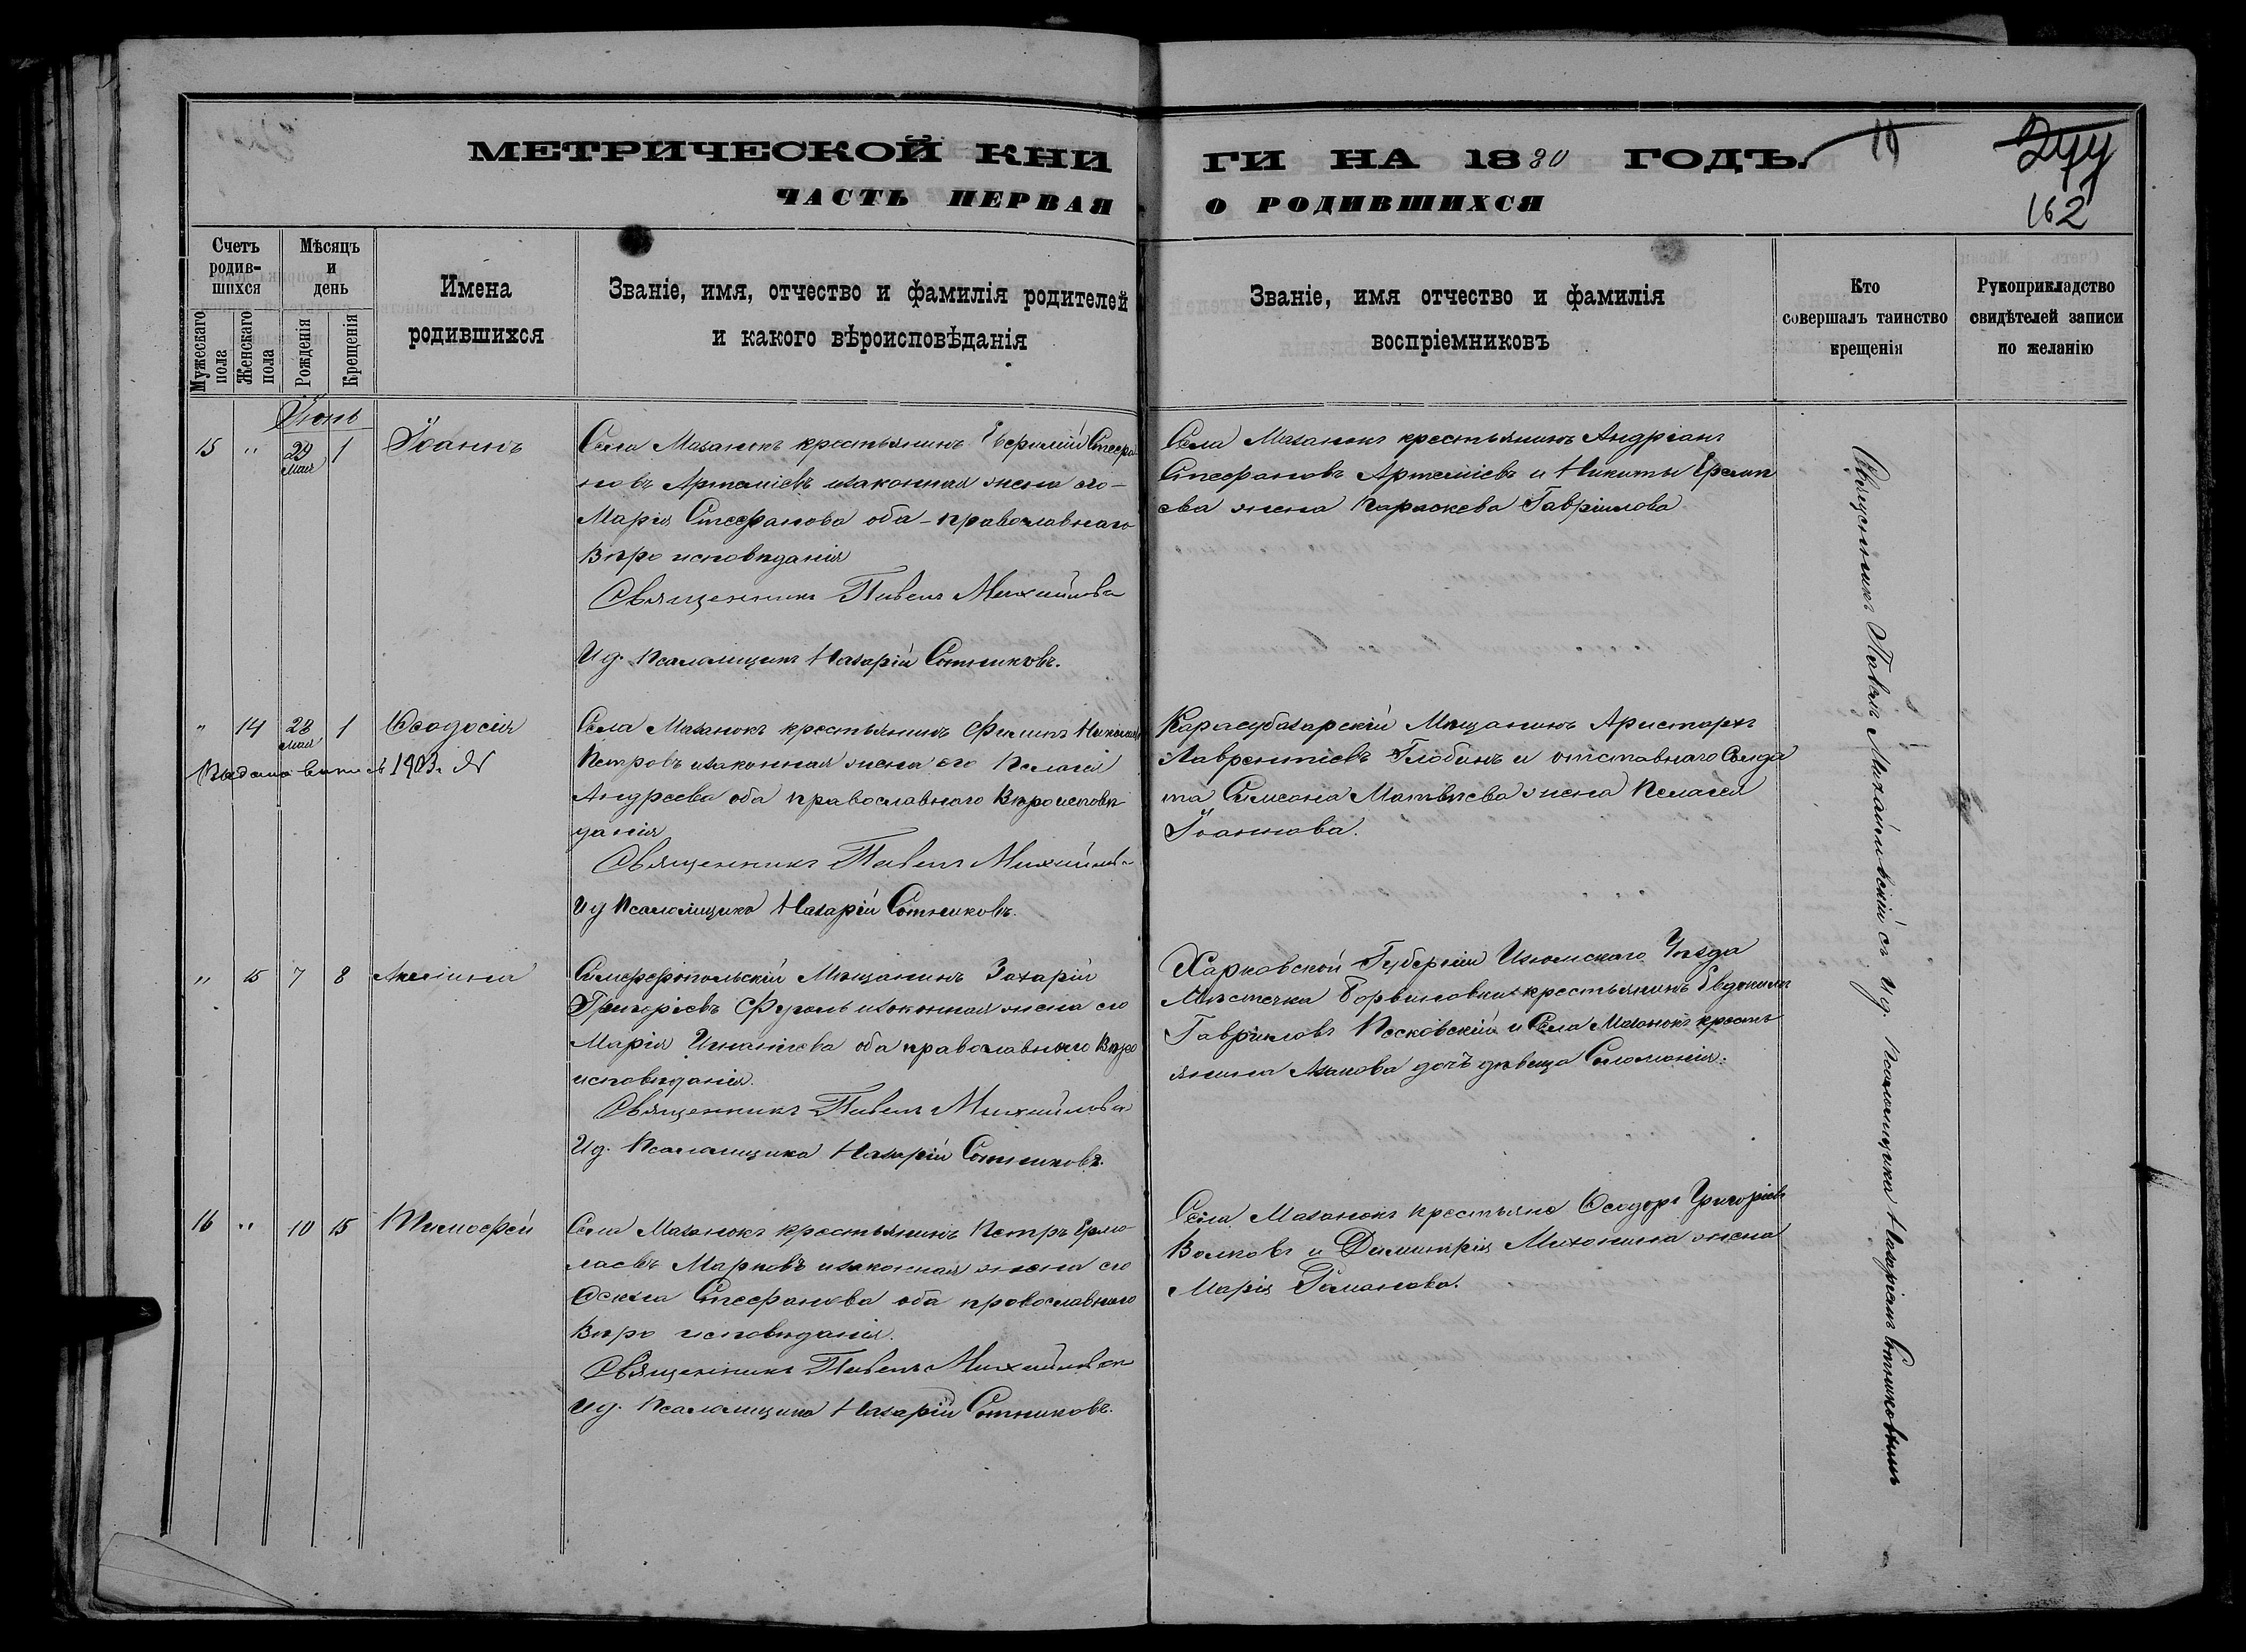 МЕТРИЧЕСКОЙ КНИ
ГИ НА 1880 ГОДЪ.
162
ЧАСТЬ ПЕРВАЯ
О РОДИВШИХСЯ
Счетъ родив-шихся
Мужескаго пола
Женскаго пола
Мѣсяцъ и день
Рожденія
Крещенія
Имена
родившихся
Званіе, имя, отчество и фамилія родителей
и какого вѣроисповѣданія
Званіе, имя отчество и фамилія
воспріемниковъ
Кто
совершалъ таинство
крещенія
Рукоприкладство
свидѣтелей записи
по желанію
Іюнь
15 " 29 Мая 1 Іоаннъ
Села Мазанокъ крестьянинъ Ефимій Стефа
новъ Артеміевъ изаконная жена его
Марія Стефанова оба православнаго
Вѣро исповѣданія
Священникъ Павелъ
Ид. Псаломщикъ Назарій Сотниковъ.
Села Мазанокъ крестьянинъ Андріанъ
Стефановъ Артеміевъ и Никиты
ева жена Параскева Гавріилова
" 14 28 мая 1 Ѳеодосія
1903г. №
Села Мазанокъ крестьянинъ Филипъ
Петровъ изаконная жена его Пелагея
Андреева оба православнаго Вѣроисповѣ
данія
Священникъ Павелъ
Ид Псаломщика Назарій Сотниковъ.
Карасубазарскій Мѣщанинъ Аристархъ
Лаврентіевъ Глобинъ и отставнаго Солда
та Симеона Матвѣева жена Пелагея
Іоаннова.
" 15 7 8 Акилина
Симферопольскій Мѣщанинъ Захарій
Григоріевъ изаконная жена его
Марія Игнатіева оба православнаго Вѣро
исповѣданія.
Священникъ Павелъ
Ид. Псаломщика Назарій Сотниковъ.
Харковской Губерніи Изюмскаго Уѣзда
Мѣстечка крестьянинъ Евдокимъ
Гавріиловъ Песковскій и Села Мазанокъ кресть
янина дочъ дѣвица Соломонія.
16 " 10 15 Тимофей
Села Мазанокъ крестьянинъ Петръ Ермо
лаевъ Марковъ изаконная жена его
Стефанова оба православнаго
Вѣро исповѣданія.
Священникъ Павелъ
Ид. Псаломщика Назарій Сотниковъ.
Села Мазанокъ крестьяне Ѳеодоръ Григоріевъ
Волковъ и Димитрія жена
Марія Романова.
Священникъ Павелъ съ ид. псаломщика Назаріемъ Сотниковымъ